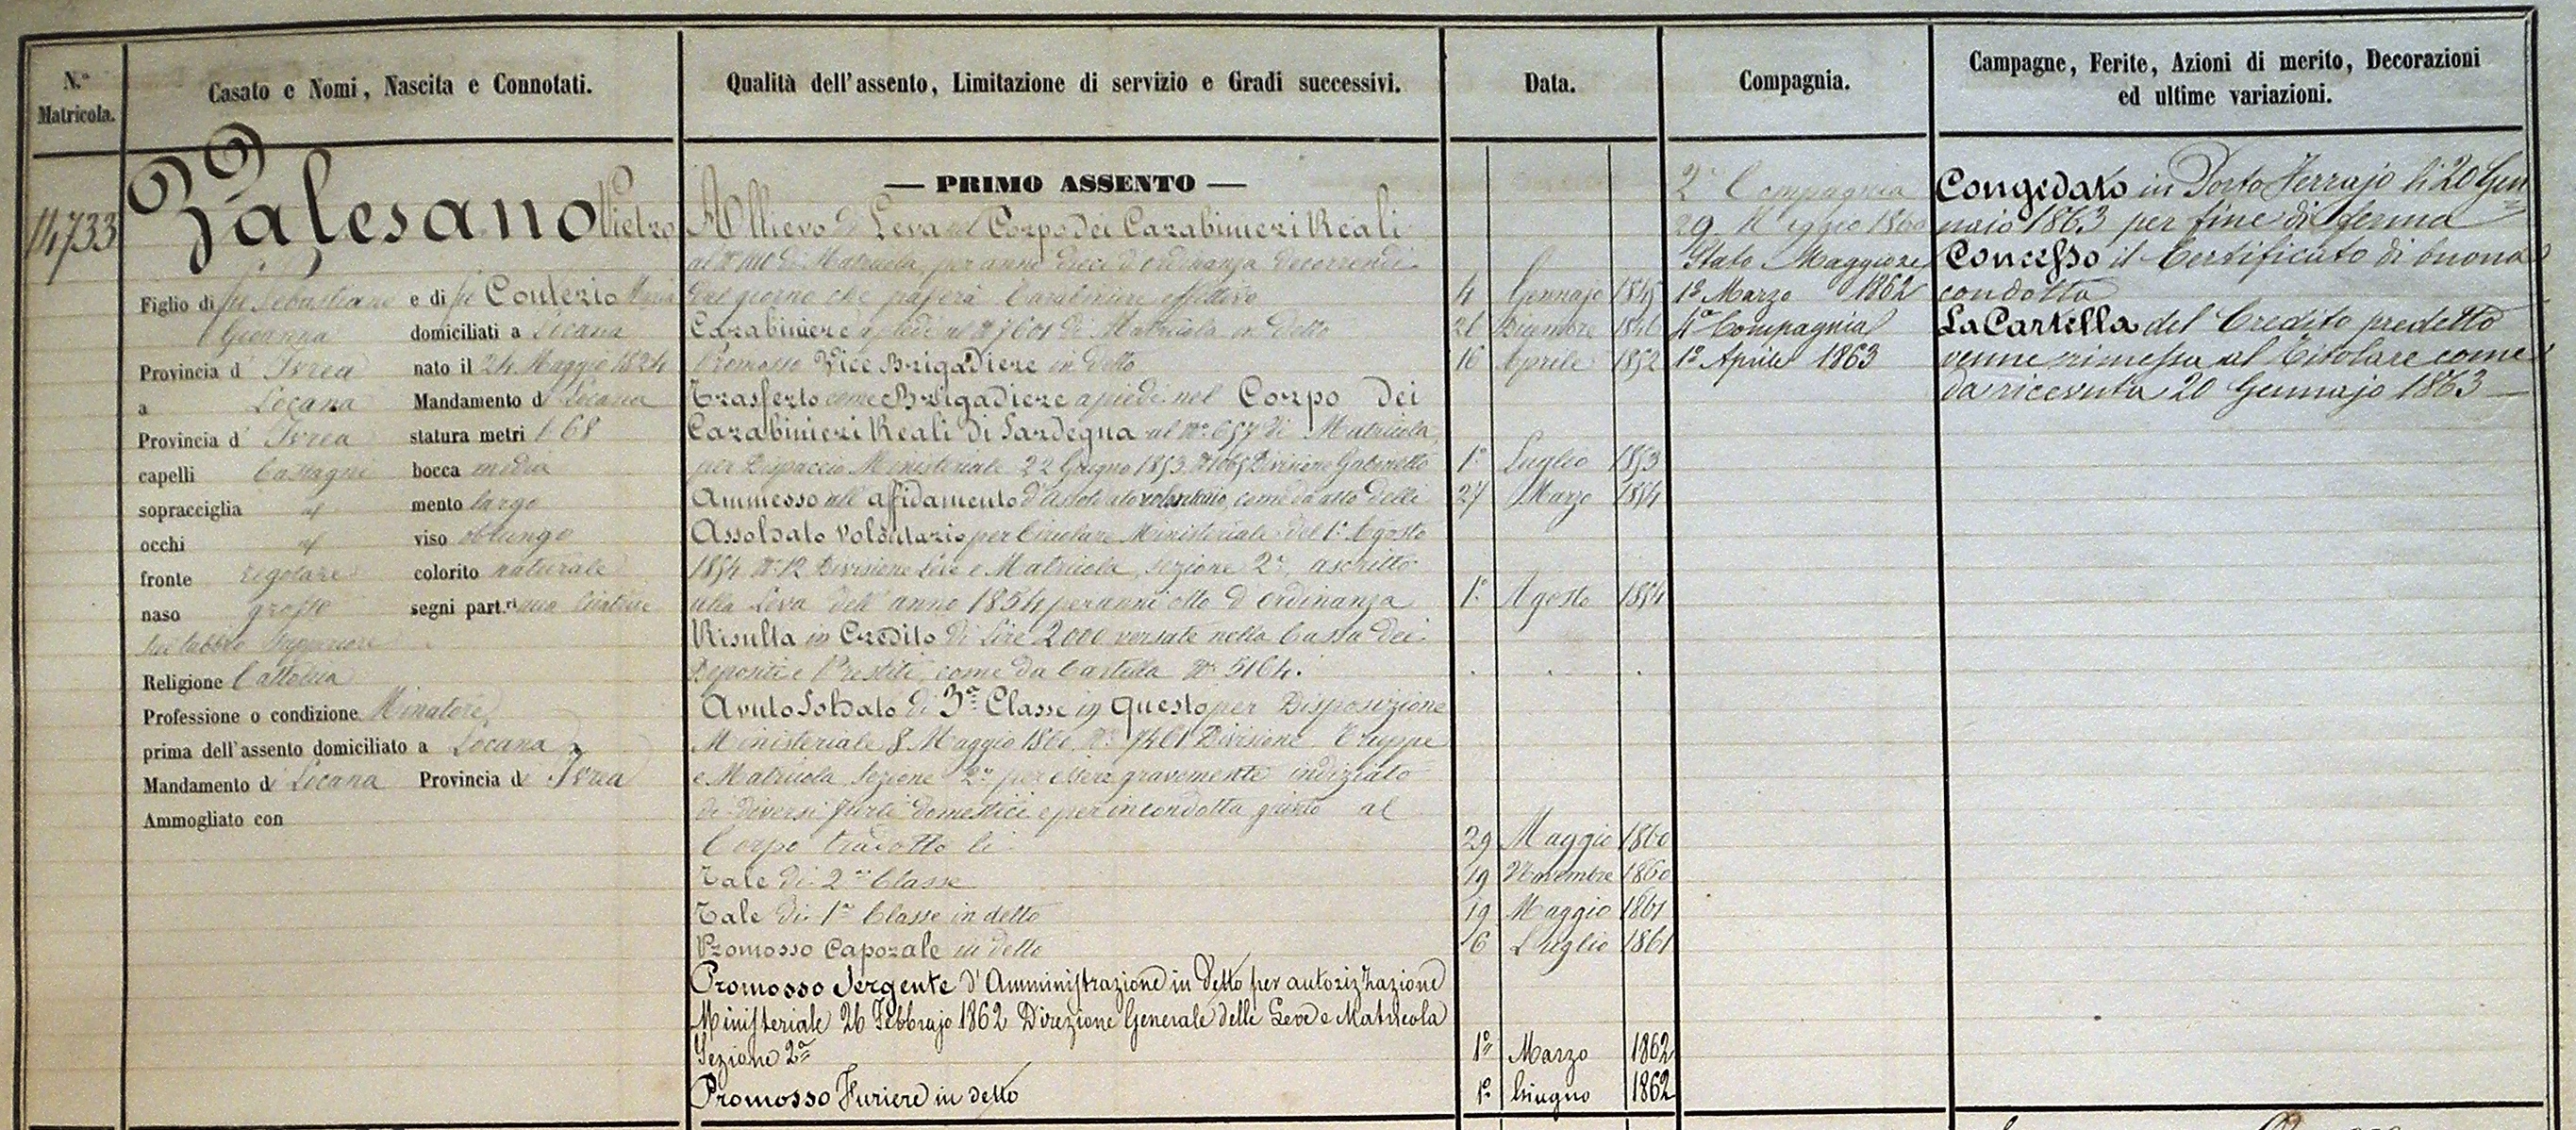 N.° Matricola.
Casato e Nomi, Nascita e Connotati.
Qualità dell'assento, Limitazione di servizio e Gradi successivi.
Data.
Compagnia.
Campagne, Ferite, Azioni di merito, Decorazioni
ed ultime variazioni.
14733
Zalesano Pietro
Figlio di fu Sebastiano e di fu Conterio Maria
Giovanna domiciliati a Locana
Provincia d Ivrea nato il 24 Maggio 1824
a Locana Mandamento di Locana
Provincia d' Ivrea statura metri 1.68
capelli Castagni bocca media
sopracciglia id mento largo
occhi id viso oblungo
fronte regolare colorito naturale
naso grosso segni part.ri una Cicatrice
sul labbro Superiore
Religione Cattolica
Professione o condizione Minatore
prima dell'assento domiciliato a Locana
Mandamento di Locana Provincia di Ivrea
Ammogliato con
— PRIMO ASSENTO —
Allievo di Leva nel Corpo dei Carabinieri Reali
di Matricola, per anni dieci d'ordinanza decorrendi
dal giorno che passerà Carabiniere effettivo 4 Gennajo 1845
Carabiniere a piedi al N° 7601 di Matricola in detto 26 Dicembre 1846
Promosso Vice Brigadiere in detto 16 Aprile 1852
Trasferto come Brigadiere a piedi nel Corpo dei
Carabinieri Reali di Sardegna al N° 657 di Matricola,
per Dispaccio Ministeriale 22 Giugno 1853 N° 1065 Divisione Gabinetto 1° Luglio 1853
Ammesso all'affidamento d'assoldato volontario, come da atto delli 27 Marzo 1854
Assoldato Volontario per Circolare Ministeriale del 1° Agosto
1854 N° 12 Divisione Leve e Matricola, sezione 2a, ascritto
alla Leva dell'anno 1854 per anni otto d'ordinanza 1° Agosto 1854
Risulta in Credito di Lire 2000 versate nella Cassa dei
Depositi e Prestiti, come da Cartella N° 5164.
Avuto Soldato di 3a Classe in questo per Disposizione
Ministeriale 8 Maggio 1860 N° 7461 Divisione Truppe
e Matricola Sezione 2a per essere gravemente indiziato
di diversi furti domestici e per incondotta giunto al
Corpo tradotto li 29 Maggio 1860
Tale di 2a Classe 19 Novembre 1860
Tale di 1a Classe in detto 19 Maggio 1861
Promosso Caporale in detto 6 Luglio 1861
Promosso Sergente d'Amministrazione in detto per autorizzazione
Ministeriale 26 Febbrajo 1862 Direzione Generale delle Leve e Matricola
Sezione 2a 1° Marzo 1862
Promosso Furiere in detto 1° Giugno 1862
2a Compagnia
29 Maggio 1860
Stato Maggiore
1° Marzo 1862
4a Compagnia
1° Aprile 1863
Congedato in Porto Ferrajo li 20 Gen
naio 1863 per fine di ferma
Concesso il Certificato di buona
condotta
La Cartella del Credito predetto
venne rimessa al Titolare come
da ricevuta 20 Gennajo 1863 —